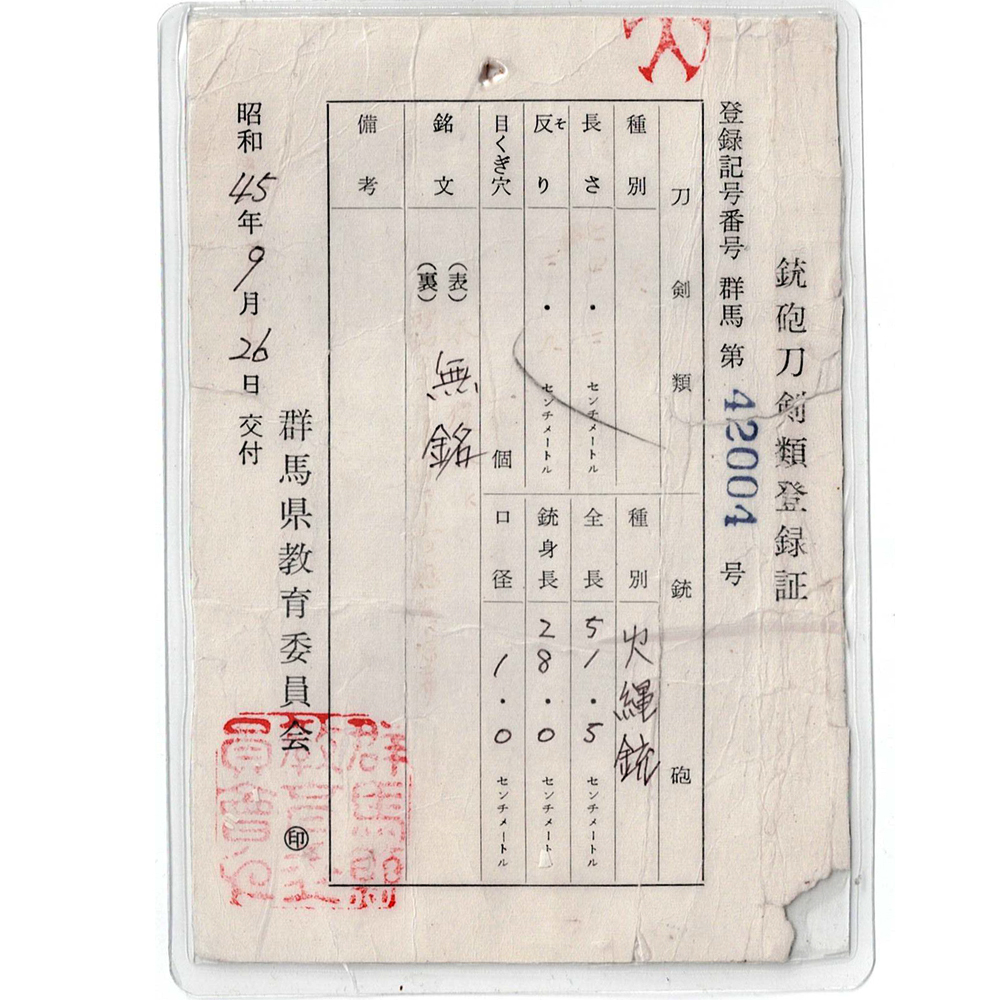 銃砲刀剣類登録証
登録記号番号 群馬 第 42004 号
刀剣類
種別
長さ ・ センチメートル
反り そ ・ センチメートル
目くぎ穴 個
銃砲
種別 火縄銃
全長 51.5 センチメートル
銃身長 28.0 センチメートル
口径 1.0 センチメートル
銘文 (表) (裏) 無銘
備考
群馬県教育委員会 ㊞
昭和 45年 9月 26日 交付